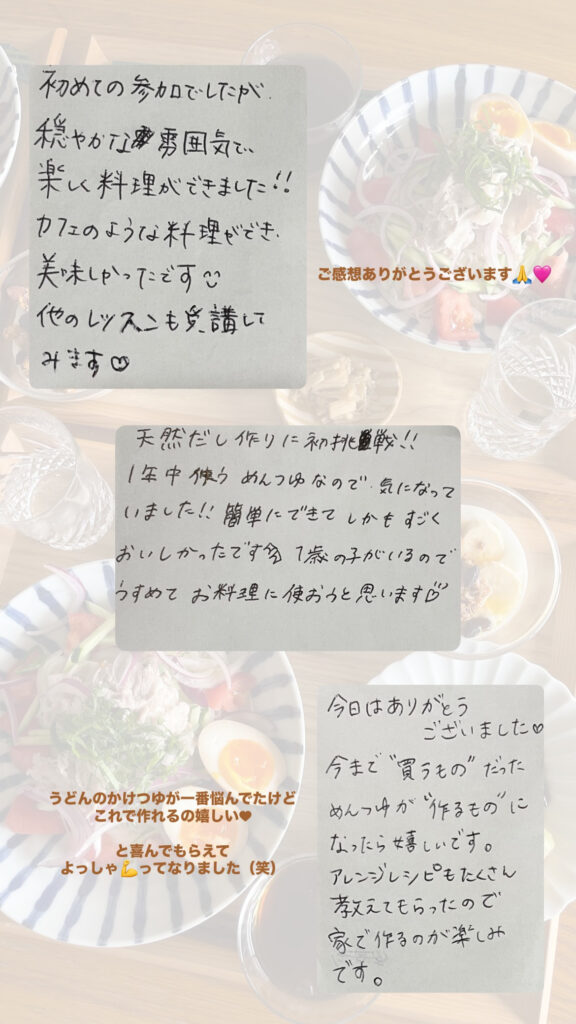 初めての参加でしたが、
穏やかな雰囲気で、
楽しく料理ができました!!
カフェのような料理ができ、
美味しかったです☺
他のレッスンも受講して
みます♡
ご感想ありがとうございます🙏🩷
天然だし作りに初挑戦!!
1年中使うめんつゆなので、気になって
いました!! 簡単にできてしかもすごく
おいしかったです 1歳の子がいるので
うすめてお料理に使おうと思います♡
今日はありがとう
ございました♡
今まで"買うもの"だった
めんつゆが"作るもの"に
なったら嬉しいです。
アレンジレシピもたくさん
教えてもらったので
家で作るのが楽しみ
です。
うどんのかけつゆが一番悩んでたけど
これで作れるの嬉しい❤
と喜んでもらえて
よっしゃ💪ってなりました（笑）